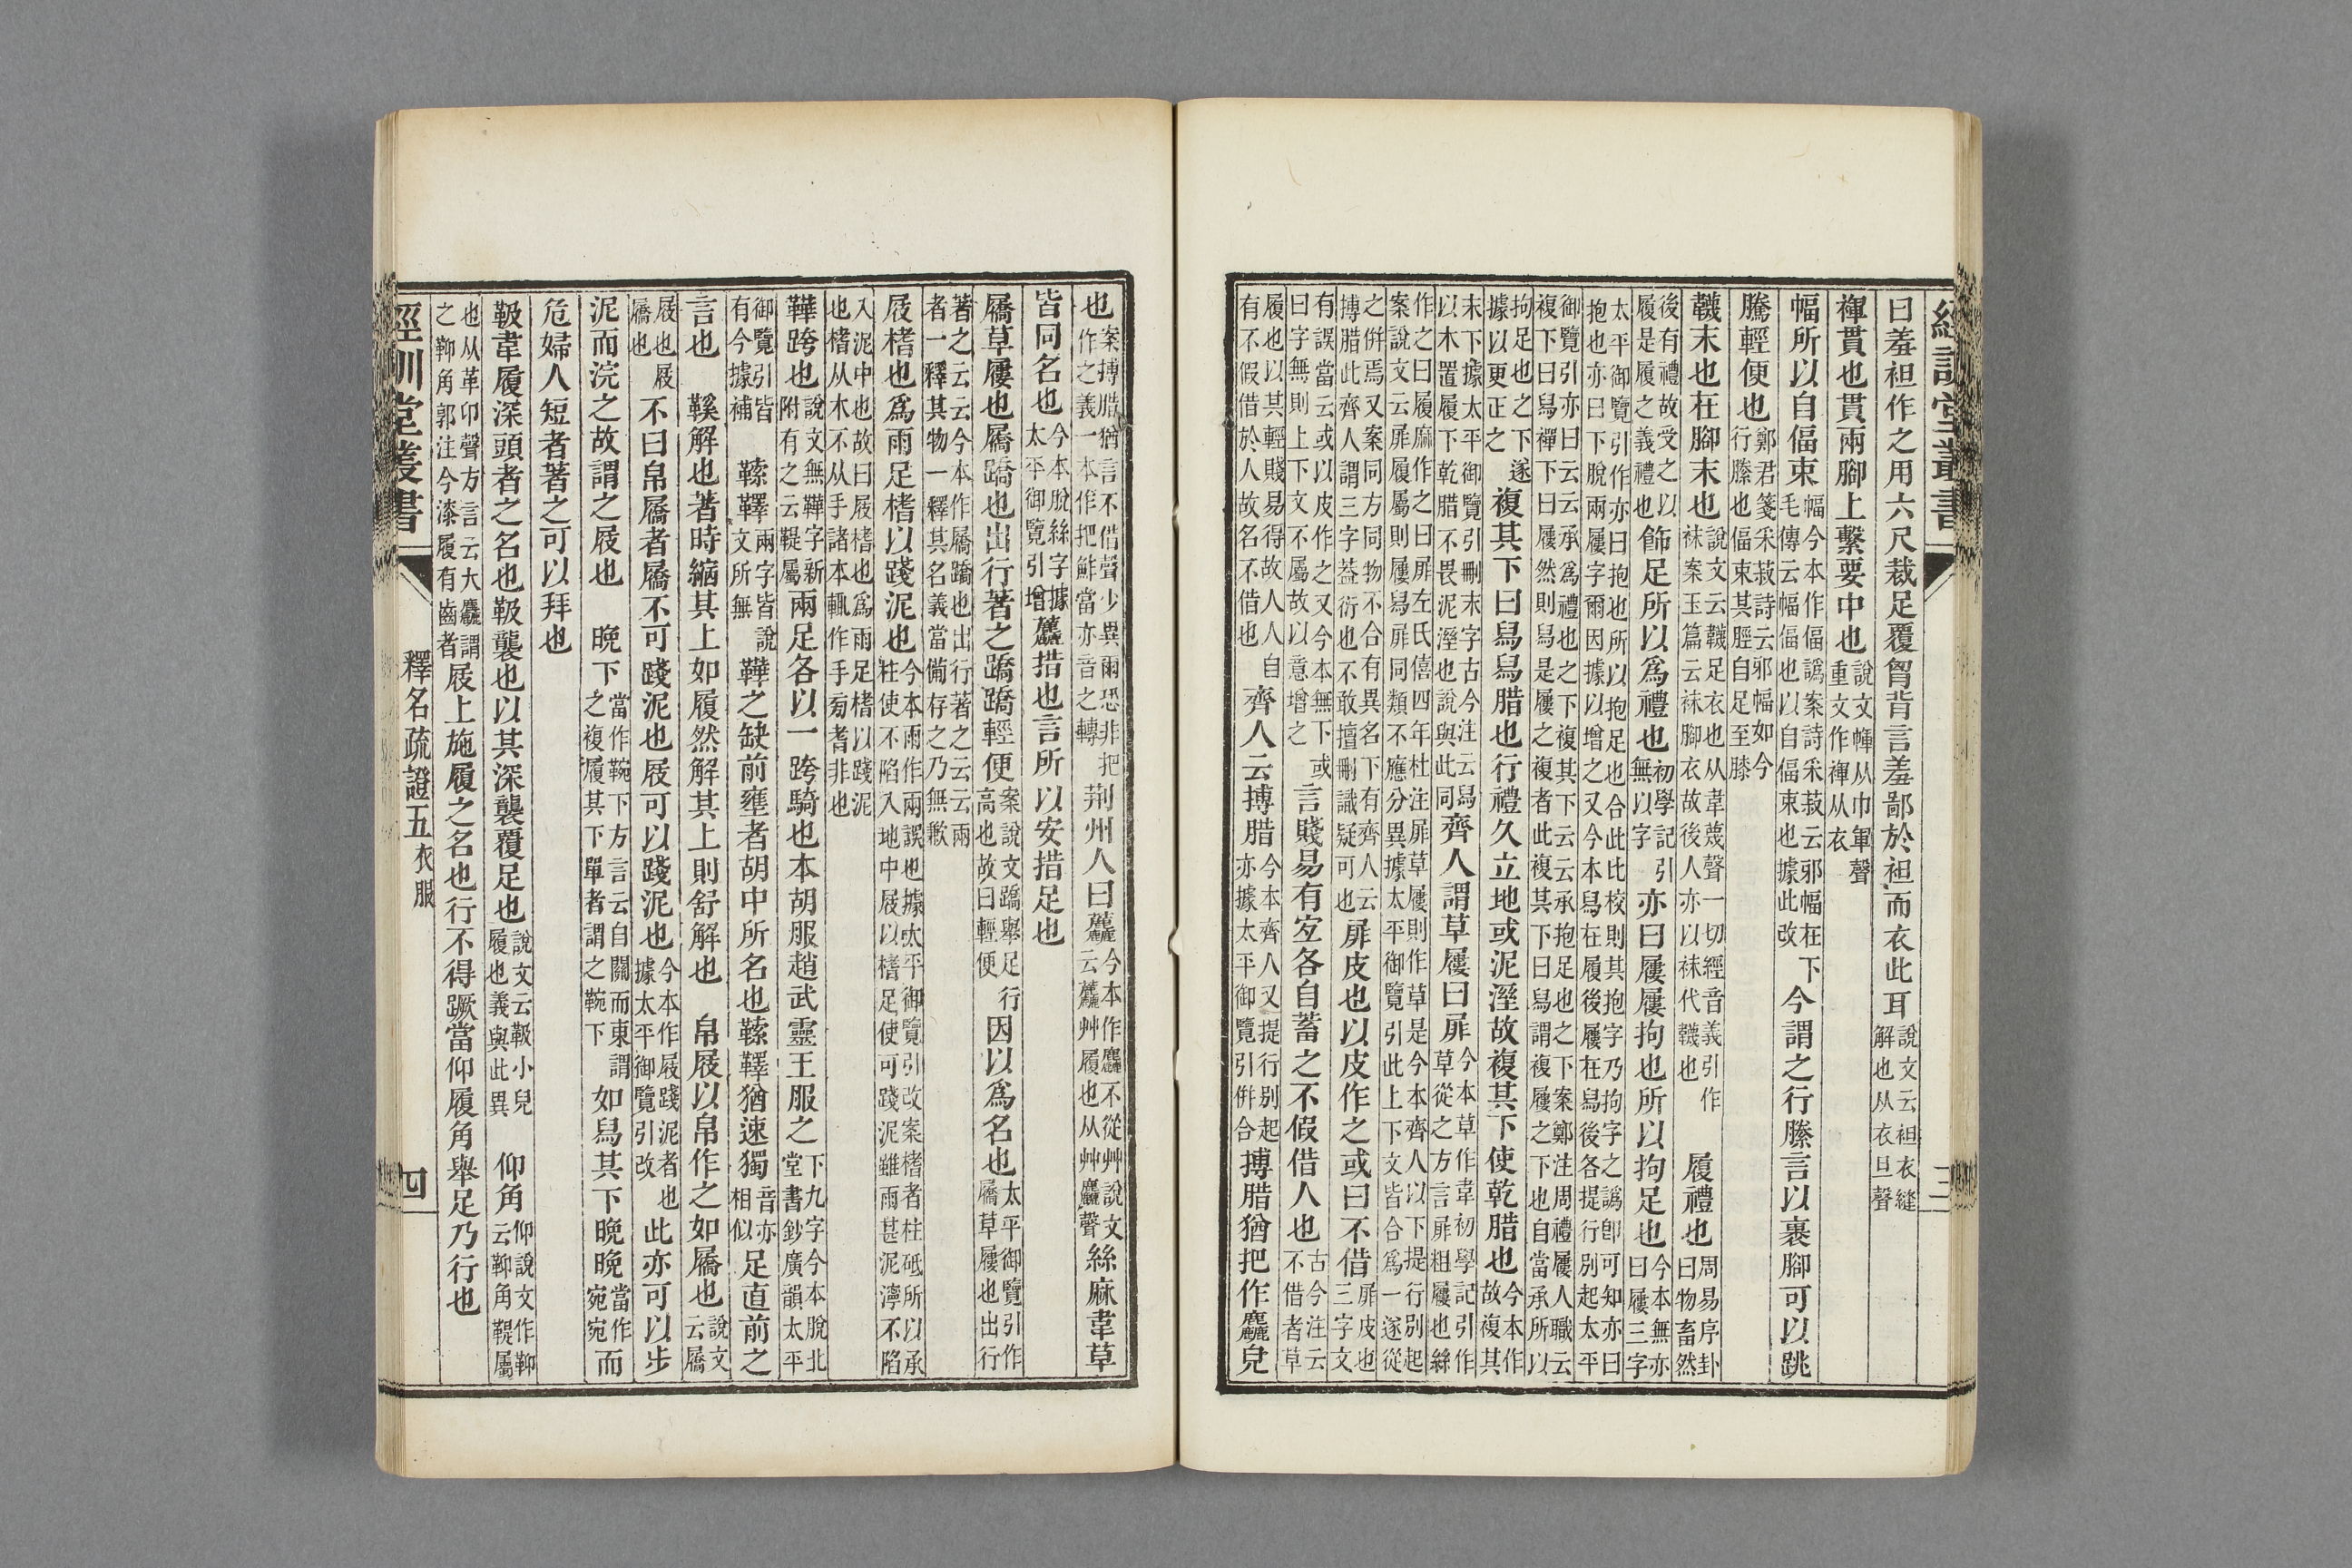 經訓堂叢書 三
曰羞袒作之用六尺裁足覆胷背言羞鄙於袒而衣此耳說文云袒衣縫解也从衣旦聲
褌貫也貫兩腳上繫要中也說文幝从巾軍聲重文作褌从衣
幅所以自偪束幅今本作偪譌案詩采菽云邪幅在下毛傳云幅偪也以自偪束也據此改今謂之行縢言以裹腳可以跳
騰輕便也鄭君箋采菽詩云邪幅如今行縢也偪束其脛自足至膝
韤末也在腳末也說文云韤足衣也从韋蔑聲一切經音義引作袜案玉篇云袜腳衣故後人亦以袜代韤也 履禮也周易序卦曰物畜然
後有禮故受之以履是履之義禮也飾足所以爲禮也初學記引無以字亦曰屨屨拘也所以拘足也今本無亦曰屨三字
太平御覽引作亦曰抱也所以抱足也合此比校則其抱字乃拘字之譌卽可知亦曰抱也亦曰下脫兩屨字爾因據以增之又今本舄在履後屨在舄後各提行別起太平
御覽引亦曰云云承爲禮也之下複其下云云承抱足也之下案鄭注周禮屨人職云複下曰舄禪下曰屨然則舄是屨之複者此複其下曰舄謂複屨之下也自當承所以
拘足也之下遂據以更正之複其下曰舄舄腊也行禮久立地或泥溼故複其下使乾腊也今本作故複其
末下據太平御覽引刪末字古今注云舄以木置履下乾腊不畏泥溼也說與此同齊人謂草屨曰屝今本草作韋初學記引作草從之方言屝粗屨也絲
作之曰履麻作之曰屝左氏僖四年杜注屝草屨則作草是今本齊人以下提行別起案說文云屝履屬則屨舄屝同類不應分異據太平御覽引此上下文皆合爲一遂從
之併焉又案同方同物不合有異名下有齊人云搏腊此齊人謂三字葢衍也不敢擅刪識疑可也屝皮也以皮作之或曰不借屝皮也三字文
有誤當云或以皮作之又今本無下或曰字無則上下文不屬故以意增之言賤易有宐各自蓄之不假借人也古今注云不借者草
履也以其輕賤易得故人人自有不假借於人故名不借也齊人云搏腊今本齊人又提行別起亦據太平御覽引併合搏腊猶把作麤皃
也案搏腊猶言不借聲少異爾恐非把作之義一本作把鮓當亦音之轉荆州人曰麤今本作麤不從艸說文云麤艸履也从艸麤聲絲麻韋草
皆同名也今本脫絲字據太平御覽引增麤措也言所以安措足也
屩草屨也屩蹻也出行著之蹻蹻輕便案說文蹻舉足行高也故曰輕便因以爲名也太平御覽引作屩草屨也出行
著之云云今本作屩蹻也出行著之云云兩者一釋其物一釋其名義當備存之乃無歉
屐榰也爲雨足榰以踐泥也今本雨作兩誤也據太平御覽引改案榰者柱砥所以承柱使不陷入地中屐以榰足使可踐泥雖雨甚泥濘不陷
入泥中也故曰屐榰也爲雨足榰以踐泥也榰从木不从手諸本輒作手菊耆非也
鞾跨也說文無鞾字新附有之云鞮屬兩足各以一跨騎也本胡服趙武靈王服之下九字今本脫北堂書鈔廣韻太平
御覽引皆有今據補 䩡䩞兩字皆說文所無鞾之缺前壅者胡中所名也䩡䩞猶速獨音亦相似足直前之
言也 鞵解也著時縮其上如履然解其上則舒解也 帛屐以帛作之如屩也說文云屩
屐也屐屩也不曰帛屩者屩不可踐泥也屐可以踐泥也今本作屐踐泥者也據太平御覽引改此亦可以步
泥而浣之故謂之屐也 晚下當作鞔下方言云自關而東謂之複履其下單者謂之鞔下如舄其下晚晚當作宛宛而
危婦人短者著之可以拜也
靸韋履深頭者之名也靸襲也以其深襲覆足也說文云靸小兒履也義與此異 仰角仰說文作䩕云䩕角鞮屬
也从革卬聲方言云大麤謂之䩕角郭注今漆履有齒者屐上施履之名也行不得蹶當仰履角舉足乃行也
經訓堂叢書 釋名疏證五衣服 四